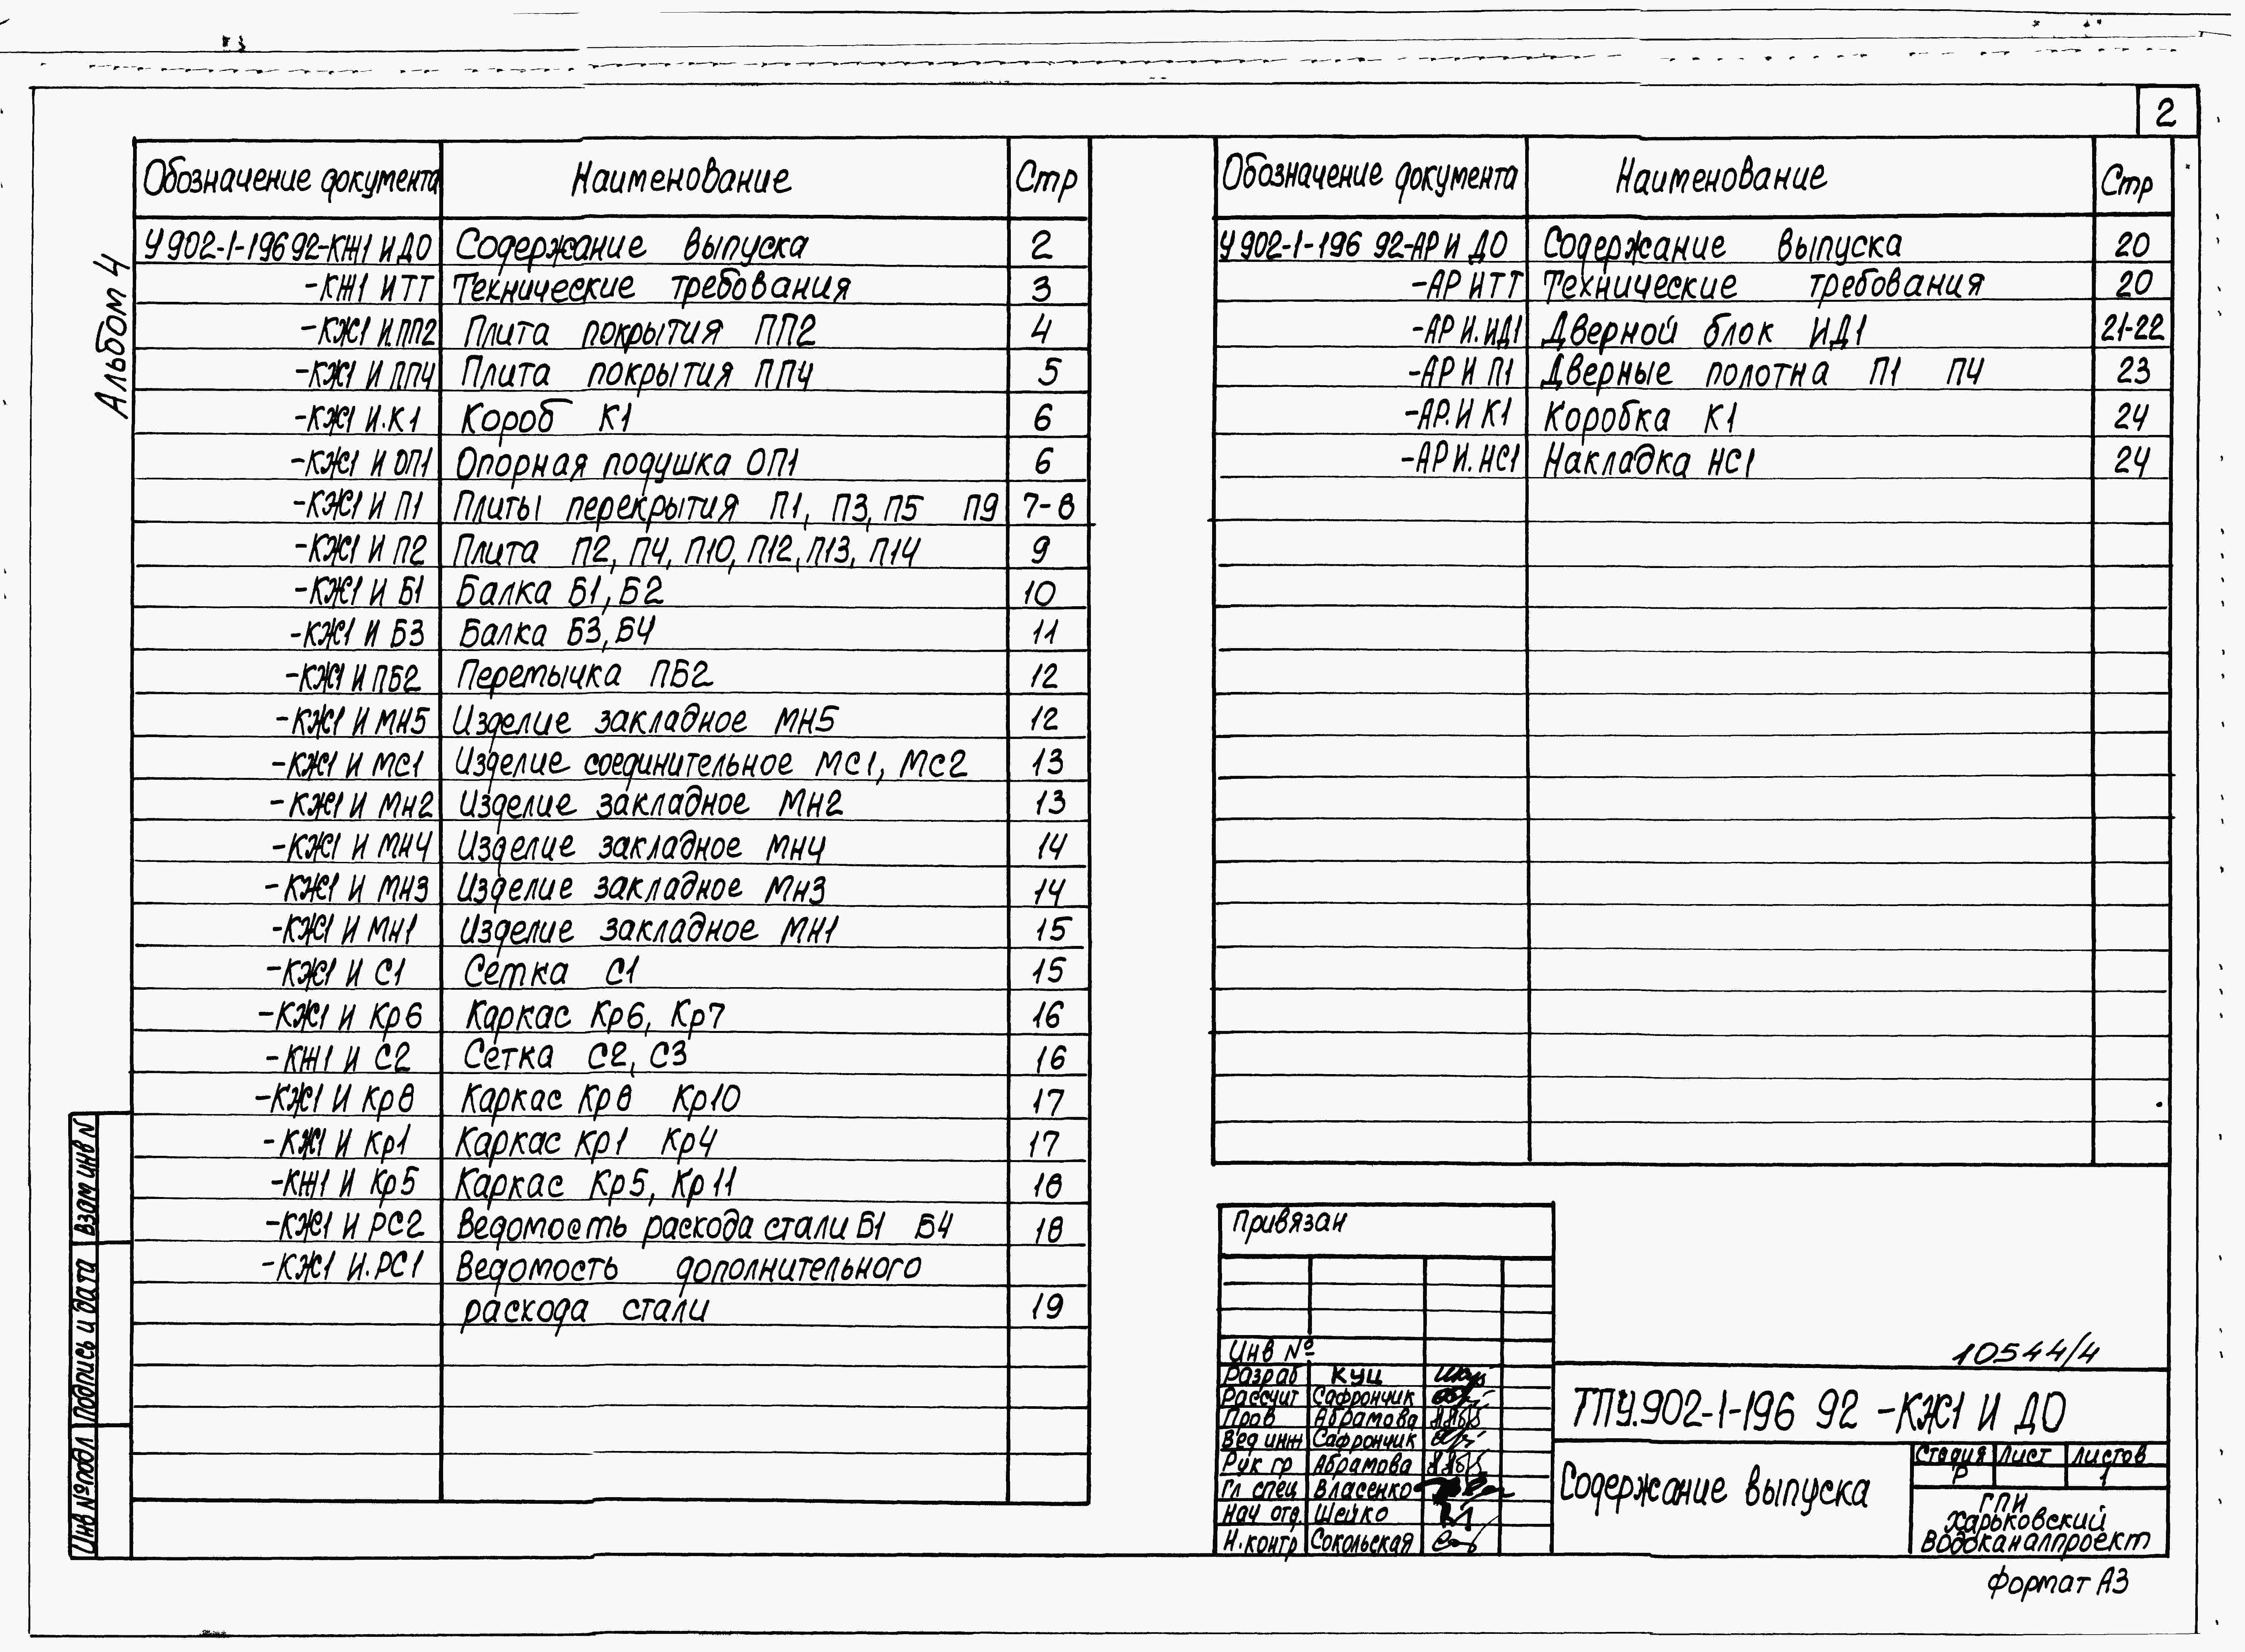 2
Альбом 4
Обозначение документа Наименование Стр
У 902-1-196 92-КЖ1 И ДО Содержание выпуска 2
-КЖ1 И ТТ Технические требования 3
-КЖ1 И.ПП2 Плита покрытия ПП2 4
-КЖ1 И ПП4 Плита покрытия ПП4 5
-КЖ1 И.К1 Короб К1 6
-КЖ1 И ОП1 Опорная подушка ОП1 6
-КЖ1 И П1 Плиты перекрытия П1, П3, П5 П9 7-8
-КЖ1 И П2 Плита П2, П4, П10, П12, П13, П14 9
-КЖ1 И Б1 Балка Б1, Б2 10
-КЖ1 И Б3 Балка Б3, Б4 11
-КЖ1 И ПБ2 Перемычка ПБ2 12
-КЖ1 И МН5 Изделие закладное МН5 12
-КЖ1 И МС1 Изделие соединительное МС1, МС2 13
-КЖ1 И МН2 Изделие закладное МН2 13
-КЖ1 И МН4 Изделие закладное МН4 14
-КЖ1 И МН3 Изделие закладное МН3 14
-КЖ1 И МН1 Изделие закладное МН1 15
-КЖ1 И С1 Сетка С1 15
-КЖ1 И Кр6 Каркас Кр6, Кр7 16
-КЖ1 И С2 Сетка С2, С3 16
-КЖ1 И Кр8 Каркас Кр8 Кр10 17
-КЖ1 И Кр1 Каркас Кр1 Кр4 17
-КЖ1 И Кр5 Каркас Кр5, Кр11 18
-КЖ1 И РС2 Ведомость расхода стали Б1 Б4 18
-КЖ1 И.РС1 Ведомость дополнительного
расхода стали 19
Обозначение документа Наименование Стр
У 902-1-196 92-АР И ДО Содержание выпуска 20
-АР И ТТ Технические требования 20
-АР И.ИД1 Дверной блок ИД1 21-22
-АР И П1 Дверные полотна П1 П4 23
-АР.И К1 Коробка К1 24
-АР И.НС1 Накладка НС1 24
Взам инв N
Подпись и дата
Инв № подл
Привязан
Инв №
Разраб Куц
Рассчит Сафрончик
Пров Абрамова
Вед инж Сафрончик
Рук гр Абрамова
Гл спец Власенко
Нач отд. Шейко
Н.контр Сокольская
10544/4
ТПУ.902-1-196 92 -КЖ1 И ДО
Содержание выпуска
Стадия Лист Листов
Р 1
ГПИ
Харьковский
Водоканалпроект
Формат А3